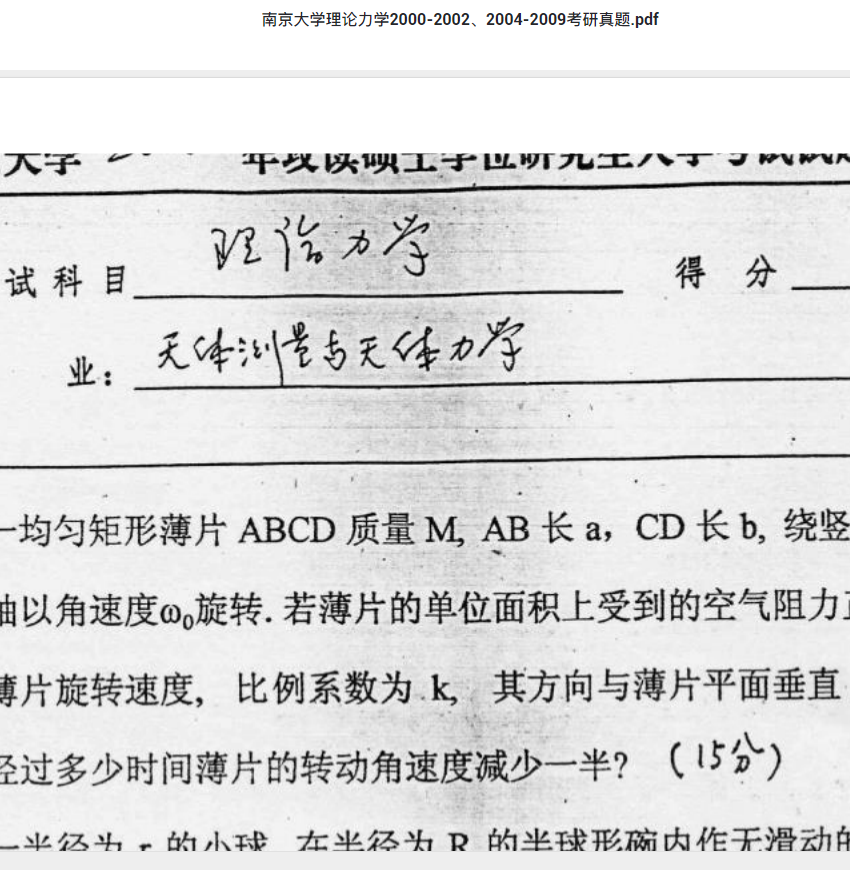 南京大学理论力学2000-2002、2004-2009考研真题.pdf
大学 年攻读硕士学位研究生入学考试试题
试科目 理论力学 得 分
业: 天体测量与天体力学
一均匀矩形薄片 ABCD 质量 M, AB 长 a, CD 长 b, 绕竖
轴以角速度ω₀旋转. 若薄片的单位面积上受到的空气阻力正
薄片旋转速度, 比例系数为 k, 其方向与薄片平面垂直
经过多少时间薄片的转动角速度减少一半? (15分)
一半径为 r 的小球, 在半径为 R 的半球形碗内作无滑动的